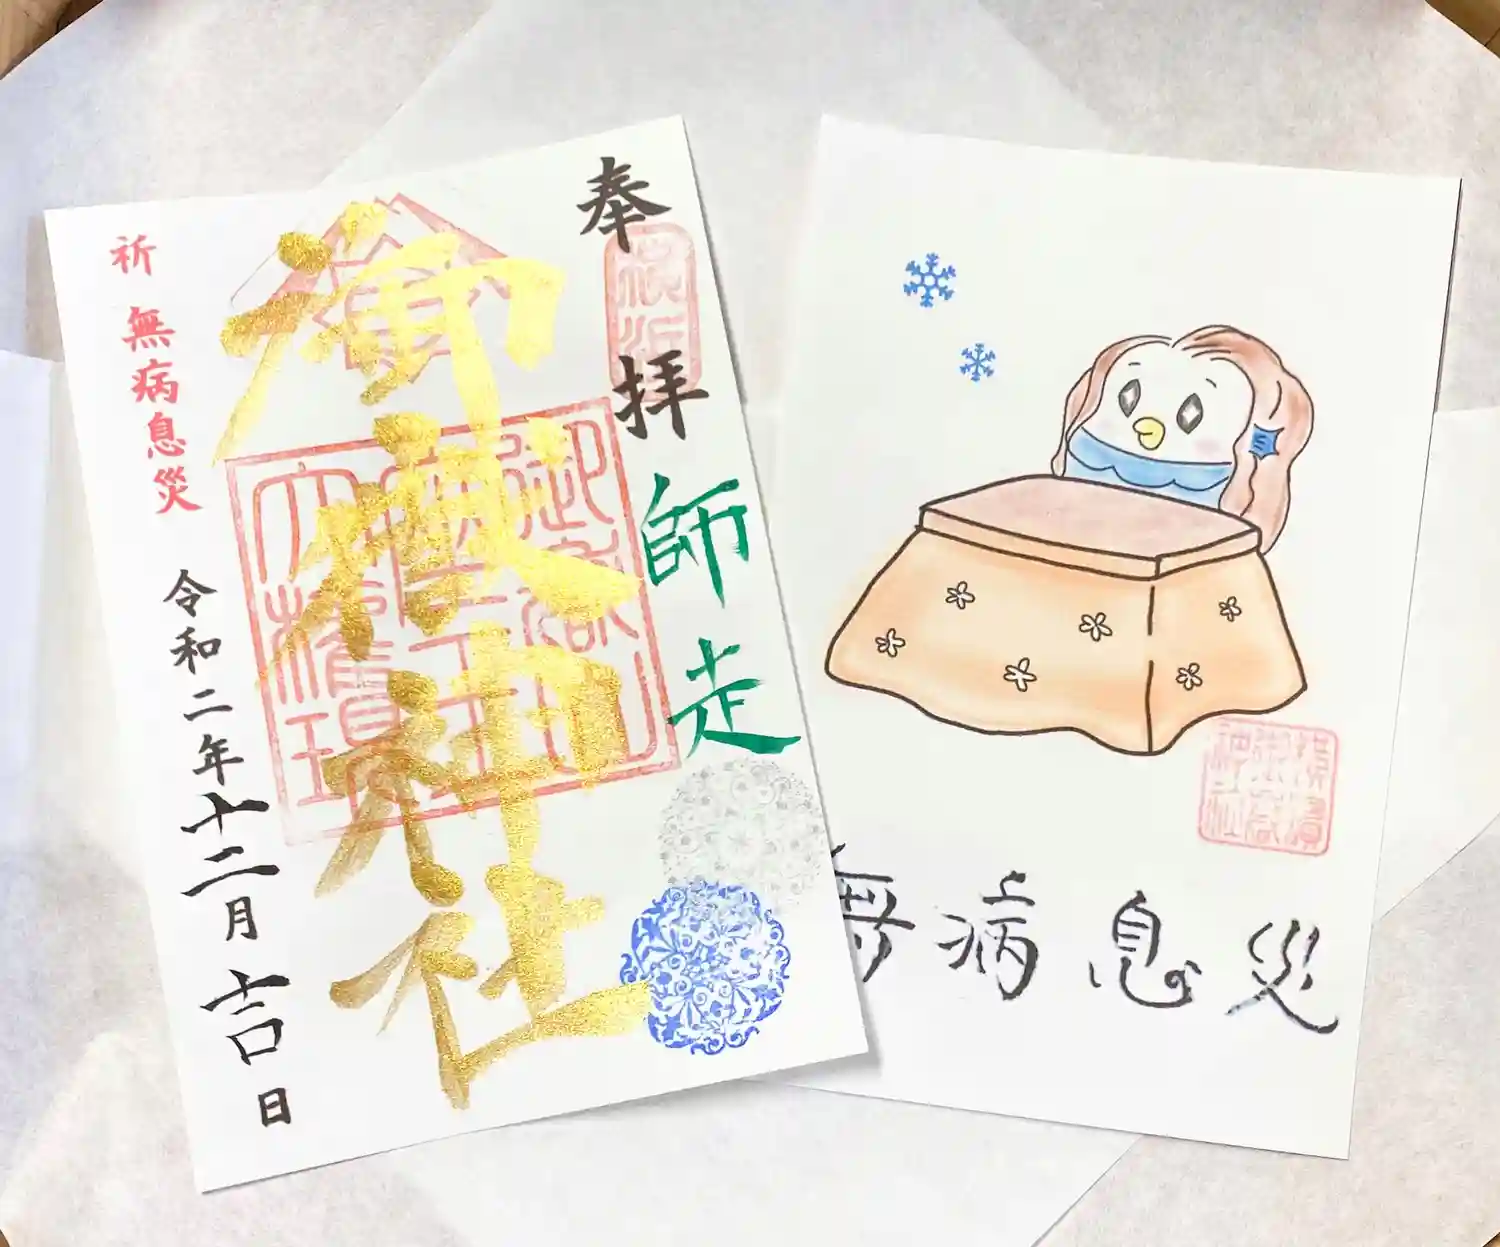 奉拝
師走
御嶽神社
祈 無病息災
令和二年十二月吉日
横濱
御嶽
神社
無病息災